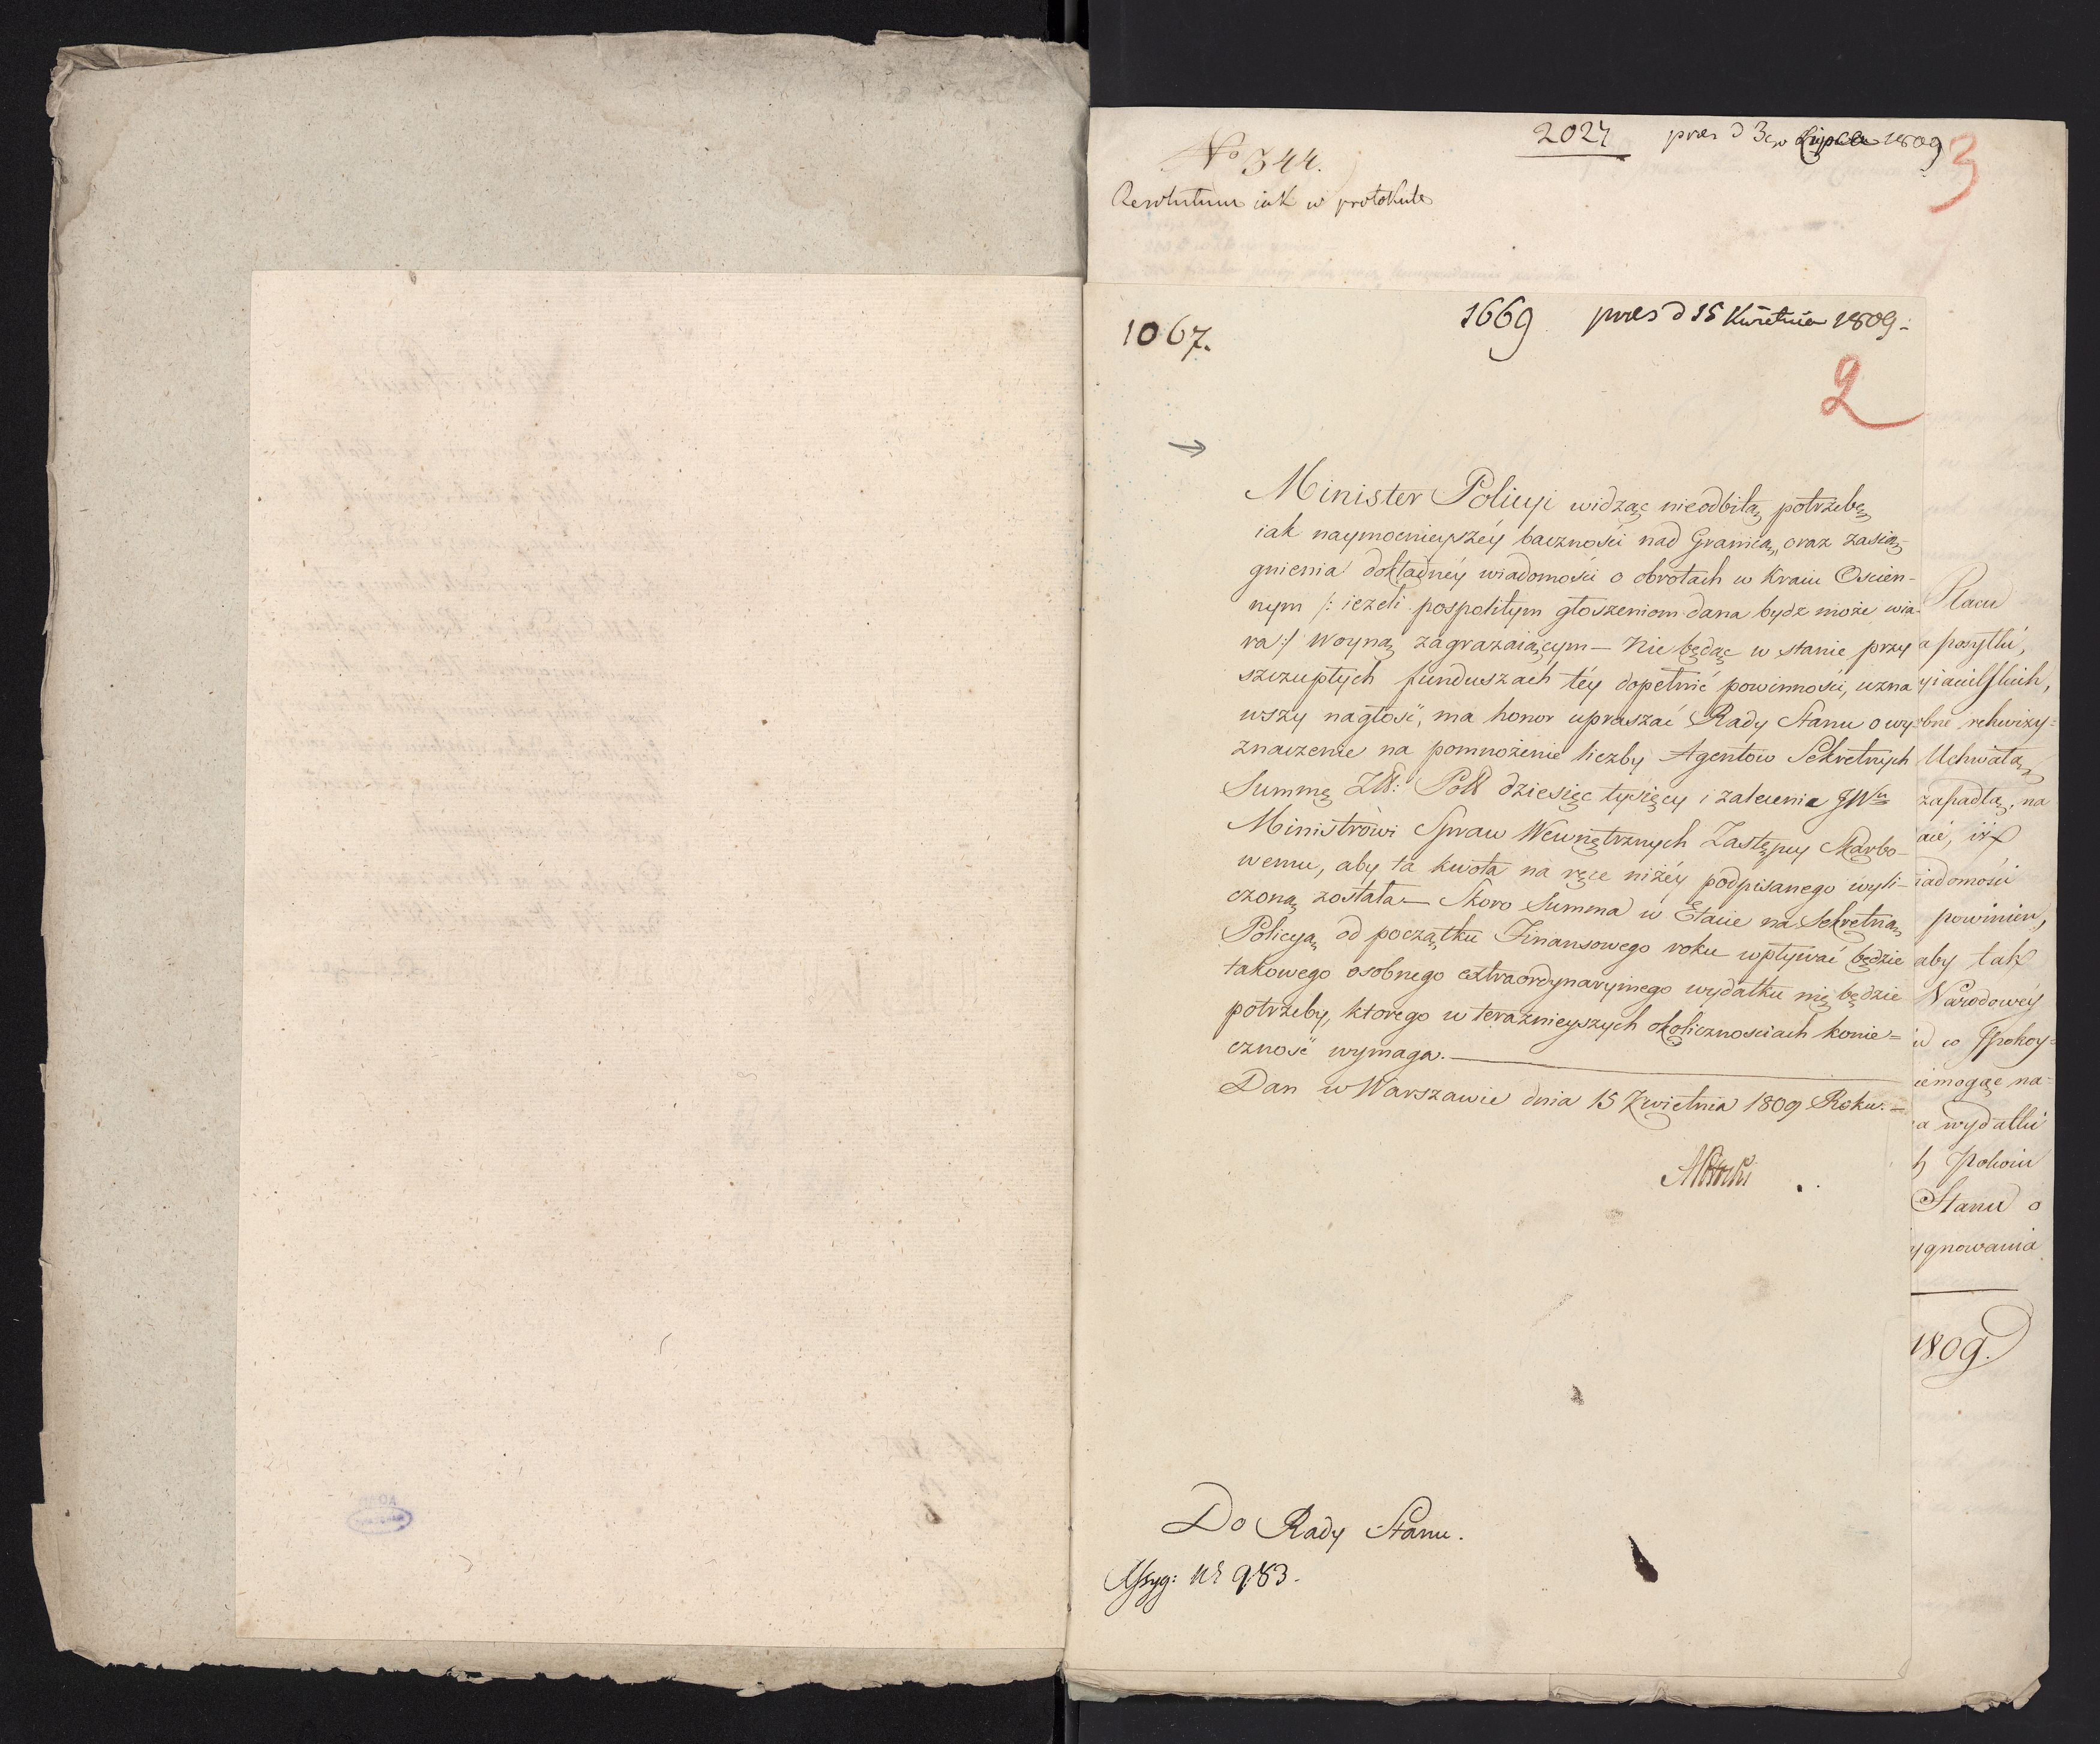 2027 pres d 3go Lipca 1809
3
No 344.
Resolutum iak w protokule
1669 pres d 15 Kwietnia 1809.
1067.
2
Minister Policyi widząc nieodbitą potrzebę
iak naymocnieyszéy baczności nad Granicą, oraz zasią-
gnienia dokładnéy wiadomości o obrotach w Kraiu Oscien-
nym /: ieżeli pospolitym głoszeniom dana bydz może wia-
ra :/ Woyną zagrażaiącym — Nie będąc w stanie przy
szczupłych funduszach téy dopełnić powinności, uzna
wszy nagłość, ma honor upraszać Rady Stanu o wy-
znaczenie na pomnożenie liczby Agentów Sekretnych
Summę Złł: Poll dziesięc tysięcy i zalecenie JWu
Ministrowi Spraw Wewnętrznych Zastępcy Skarbo-
wemu, aby ta kwota na ręce niżéy podpisanego wyli-
czoną została — Skoro Summa w Etacie na Sekretną
Policyą od początku Finansowego roku wpływać będzie
takowego osobnego extraordynaryinego wydatku nie będzie
potrzeby, ktorego w teraźnieyszych okolicznościach konie=
czność wymaga. —
Dan w Warszawie dnia 15 Kwietnia 1809 Roku. —
APotocki
Do Rady Stanu.
Assyg: Nr 983.
Placu
a posyłki,
yiacielskich,
bne rekwizy=
Uchwałą
zapadłą, na
aić, iż
iadomości
powinien,
aby tak
Narodowéy
w spokoy=
iemogąc na-
a wydatki
Pokoiu
Stanu o
ygnowania
1809.